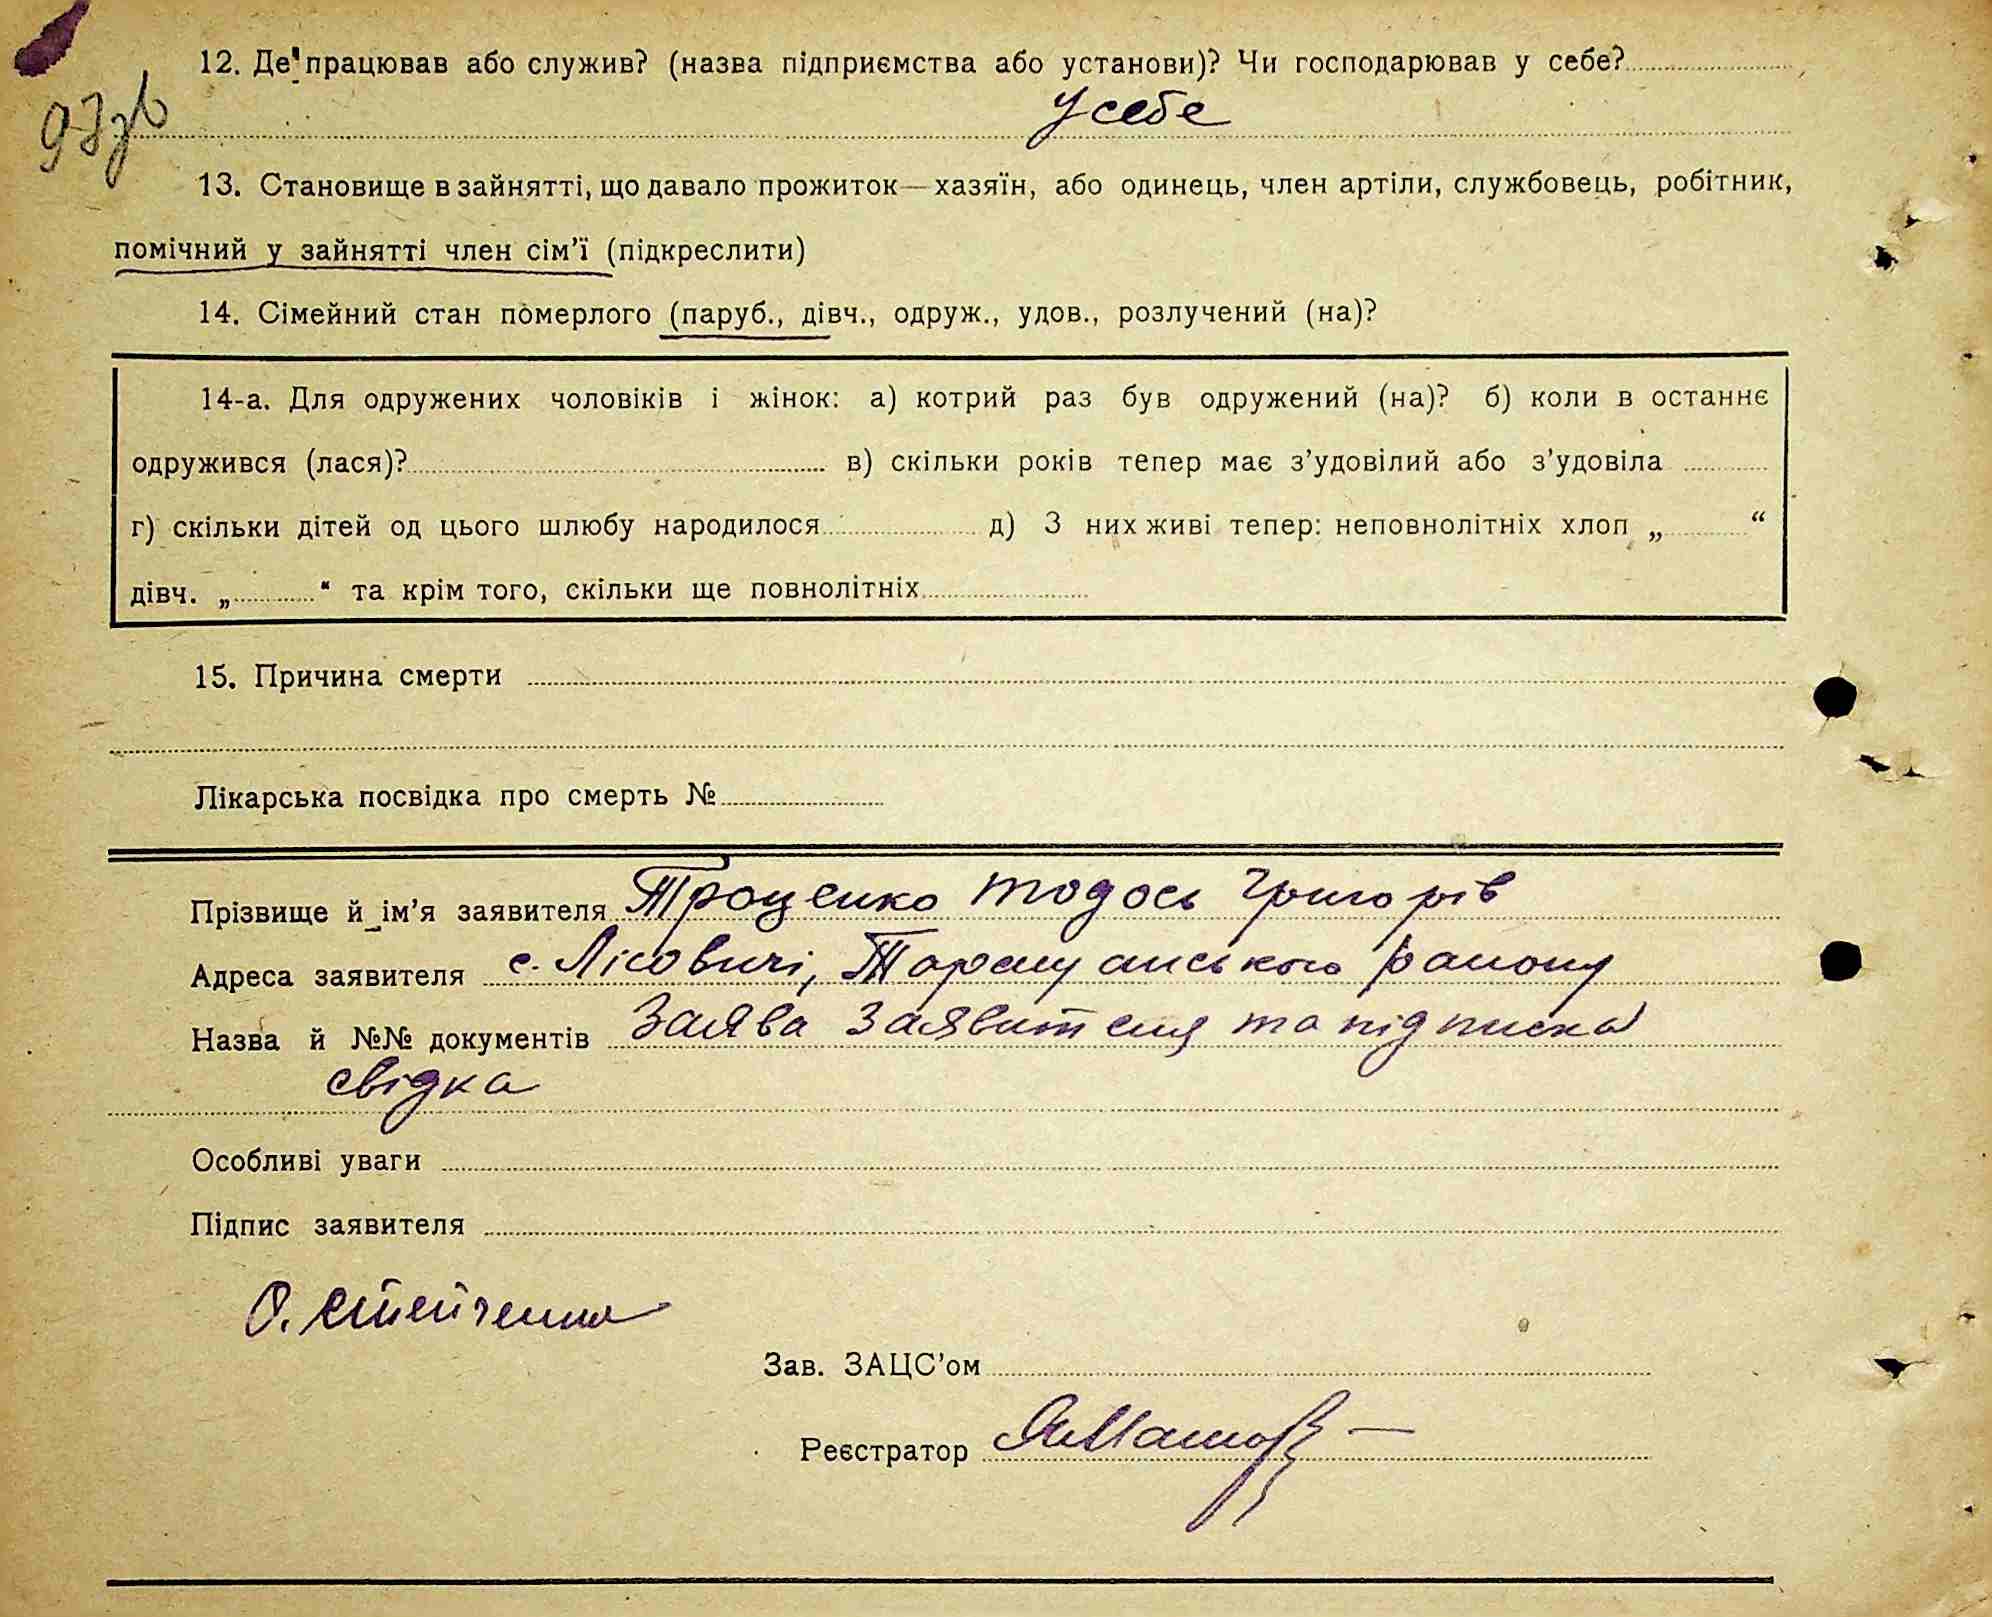 12. Де працював або служив? (назва підприємства або установи)? Чи господарював у себе?
93зв
У себе
13. Становище в зайнятті, що давало прожиток — хазяїн, або одинець, член артіли, службовець, робітник,
помічний у зайнятті член сім’ї (підкреслити)
14. Сімейний стан померлого (паруб., дівч., одруж., удов., розлучений (на)?
14-а. Для одружених чоловіків і жінок: а) котрий раз був одружений (на)? б) коли в останнє
одружився (лася)? в) скільки років тепер має з’удовілий або з’удовіла
г) скільки дітей од цього шлюбу народилося д) З них живі тепер: неповнолітніх хлоп „ “
дівч. „ “ та крім того, скільки ще повнолітніх
15. Причина смерти
Лікарська посвідка про смерть №
Прізвище й ім’я заявителя Троценко Тодось Григорів
Адреса заявителя с. Лісовичі, Таращанського району
Назва й №№ документів Заява заявителя та підписка
свідка
Особливі уваги
Підпис заявителя
О.
Зав. ЗАЦС’ом
Реєстратор